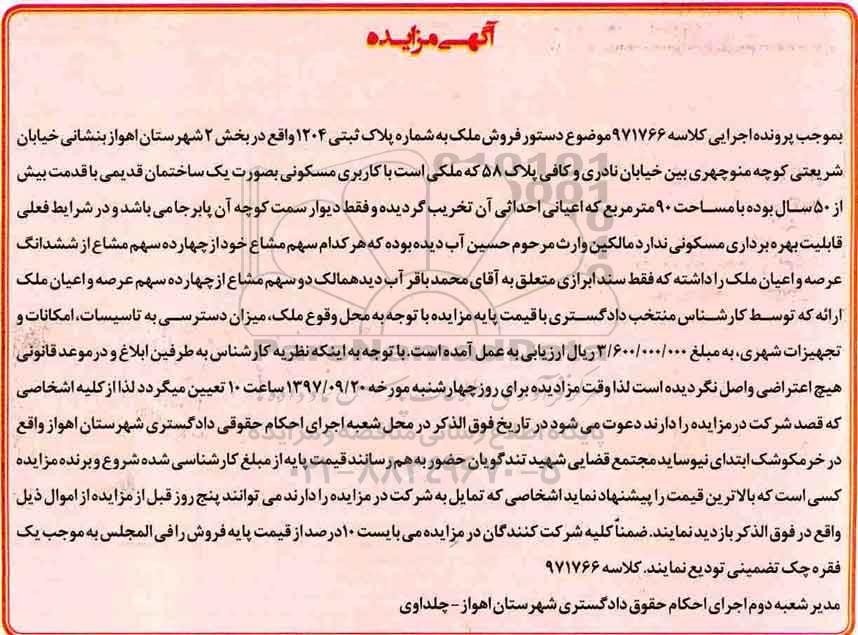 آگهی مزایده
بموجب پرونده اجرایی کلاسه ۹۷۱۷۶۶ موضوع دستور فروش ملک به شماره پلاک ثبتی ۱۲۰۴ واقع در بخش ۲ شهرستان اهواز بنشانی خیابان
شریعتی کوچه منوچهری بین خیابان نادری و کافی پلاک ۵۸ که ملکی است با کاربری مسکونی بصورت یک ساختمان قدیمی با قدمت بیش
از ۵۰ سال بوده با مساحت ۹۰ متر مربع که اعیانی احداثی آن تخریب گردیده و فقط دیوار سمت کوچه آن پابرجا می باشد و در شرایط فعلی
قابلیت بهره برداری مسکونی ندارد مالکین وارث مرحوم حسین آب دیده بوده که هر کدام سهم مشاع خود از چهارده سهم مشاع از ششدانگ
عرصه و اعیان ملک را داشته که فقط سند ابرازی متعلق به آقای محمد باقر آب دیدهمالک دو سهم مشاع از چهارده سهم عرصه و اعیان ملک
ارائه که توسط کارشناس منتخب دادگستری با قیمت پایه مزایده با توجه به محل وقوع ملک، میزان دسترسی به تاسیسات، امکانات و
تجهیزات شهری، به مبلغ ۳/۶۰۰/۰۰۰/۰۰۰ ریال ارزیابی به عمل آمده است. با توجه به اینکه نظریه کارشناس به طرفین ابلاغ و در موعد قانونی
هیچ اعتراضی واصل نگردیده است لذا وقت مزادیده برای روز چهارشنبه مورخه ۱۳۹۷/۰۹/۲۰ ساعت ۱۰ تعیین میگردد لذا از کلیه اشخاصی
که قصد شرکت در مزایده را دارند دعوت می شود در تاریخ فوق الذکر در محل شعبه اجرای احکام حقوقی دادگستری شهرستان اهواز واقع
در خرمکوشک ابتدای نیوساید مجتمع قضایی شهید تندگویان حضور به هم رسانند قیمت پایه از مبلغ کارشناسی شده شروع و برنده مزایده
کسی است که بالاترین قیمت را پیشنهاد نماید اشخاصی که تمایل به شرکت در مزایده را دارند می توانند پنج روز قبل از مزایده از اموال ذیل
واقع در فوق الذکر بازدید نمایند. ضمناً کلیه شرکت کنندگان در مزایده می بایست ۱۰ درصد از قیمت پایه فروش را فی المجلس به موجب یک
فقره چک تضمینی تودیع نمایند. کلاسه ۹۷۱۷۶۶
مدیر شعبه دوم اجرای احکام حقوق دادگستری شهرستان اهواز - چلداوی
ParsNamadData
پایگاه اطلاع رسانی مناقصه و مزایده
۰۲۱-۸۸۳۴۹۶۷۰-۵